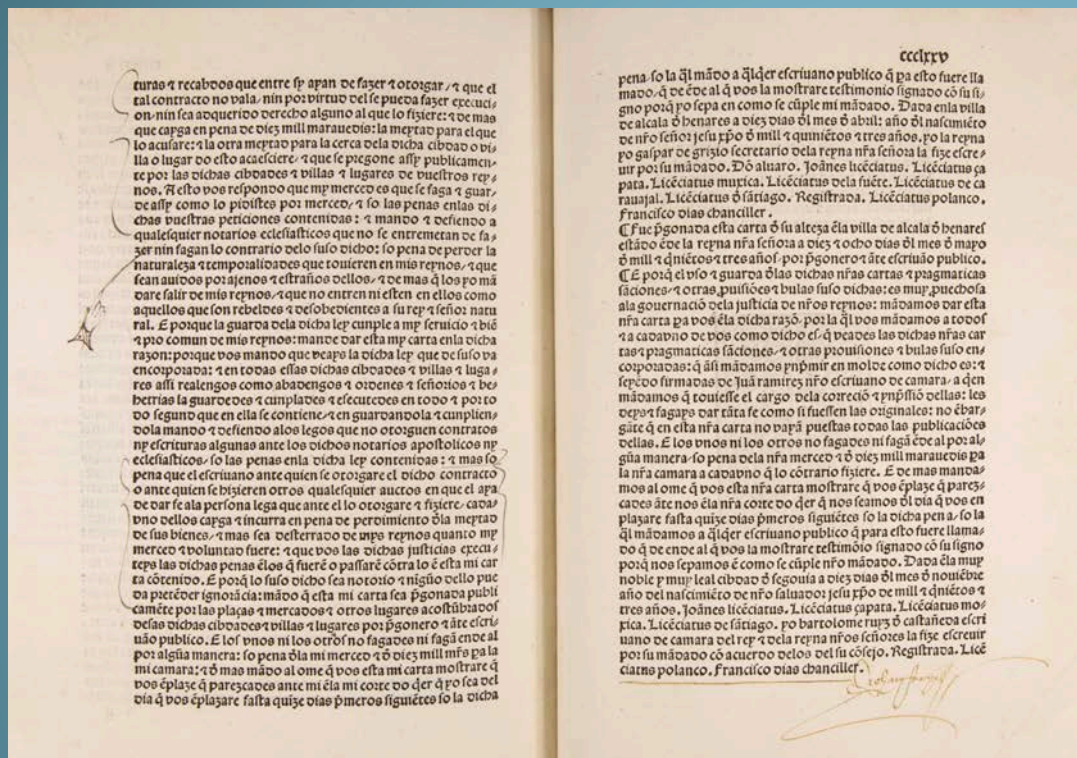 turas ⁊ recabdos que entre sy ayan de fazer ⁊ otorgar / ⁊ que el
tal contracto no vala / nin por virtud del se pueda fazer execuci-
on / nin sea adquerido derecho alguno al que lo fiziere: ⁊ de mas
que cayga en pena de diez mill marauedis: la meytad para el que
lo acusare: ⁊ la otra meytad para la cerca dela dicha cibdad o vi-
lla o lugar do esto acaesciere / ⁊ que se pregone assy publicamen-
te por las dichas cibdades ⁊ villas ⁊ lugares de vuestros rey-
nos. A esto vos respondo que my merced es que se faga ⁊ guar-
de assy como lo pidistes por merced / ⁊ so las penas enlas di-
chas vuestras peticiones contenidas: ⁊ mando ⁊ defiendo a
qualesquier notarios eclesiasticos que no se entremetan de fa-
zer nin fagan lo contrario delo suso dicho: so pena de perder la
naturaleza ⁊ temporalidades que touieren en mis reynos / ⁊ que
sean auidos por ajenos ⁊ estraños dellos / ⁊ de mas q̃ los yo mã
dare salir de mis reynos / ⁊ que no entren ni esten en ellos como
aquellos que son rebeldes ⁊ desobedientes a su rey ⁊ señor natu
ral. E porque la guarda dela dicha ley cunple a my seruicio ⁊ biẽ
⁊ pro comun de mis reynos: mande dar esta my carta enla dicha
razon: porque vos mando que veays la dicha ley que de suso va
encorporada: ⁊ en todas essas dichas cibdades ⁊ villas ⁊ luga-
res assi realengos como abadengos ⁊ ordenes ⁊ señorios ⁊ be-
hetrias la guardedes ⁊ cunplades ⁊ esecutedes en todo ⁊ por to
do segund que en ella se contiene / ⁊ en guardandola ⁊ cunplien-
dola mando ⁊ defiendo alos legos que no otorguen contratos
ny escrituras algunas ante los dichos notarios apostolicos ny
eclesiasticos / so las penas enla dicha ley contenidas: ⁊ mas so
pena que el escriuano ante quien se otorgare el dicho contracto
o ante quien se hizieren otros qualesquier auctos en que el aya
de dar fe ala persona lega que ante el lo otorgare ⁊ fiziere / cada-
vno dellos cayga ⁊ incurra en pena de perdimiento ðla meytad
de sus bienes / ⁊ mas sea desterrado de mys reynos quanto my
merced ⁊ voluntad fuere: ⁊ que vos las dichas justicias execu-
teys las dichas penas ẽlos q̃ fuerẽ o passarẽ cõtra lo ẽ esta mi car
ta cõtenido. E porq̃ lo suso dicho sea notorio ⁊ nigũo dello pue
da pretẽder ignorãcia: mãdo q̃ esta mi carta sea p̃gonada publi
camẽte por las plaças ⁊ mercados ⁊ otros lugares acostũbrados
desas dichas cibdades ⁊ villas ⁊ lugares por p̃gonero ⁊ ãte escri-
uão publico. E los vnos ni los otros no fagades ni fagã ende al
por algũa manera: so pena ðla mi merced ⁊ ð diez mill mr̃s pa la
mi camara: ⁊ ð mas mãdo al ome q̃ vos esta mi carta mostrare q̃
vos ẽplaze q̃ parezcades ante mi ẽla mi corte do q̃er q̃ yo sea del
dia q̃ vos ẽplazare fasta quize dias p̃meros siguiẽtes so la dicha
ccclxxv
pena / so la q̃l mãdo a q̃lq̃er escriuano publico q̃ pa esto fuere lla
mado / q̃ de ẽde al q̃ vos la mostrare testimonio signado cõ su si-
gno porq̃ yo sepa en como se cũple mi mãdado. Dada enla villa
de alcala ð henares a diez dias ðl mes ð abril: año ðl nascimiẽto
de nr̃o señor jesu xp̃o ð mill ⁊ quiniẽtos ⁊ tres años. yo la reyna
yo gaspar de grizio secretario dela reyna nr̃a señora la fize escre-
uir por su mãdado. Dõ aluaro. Joãnes licẽciatus. Licẽciatus ça
pata. Licẽciatus muxica. Licẽciatus dela fuẽte. Licẽciatus de ca
rauajal. Licẽciatus ð sãtiago. Registrada. Licẽciatus polanco.
Francisco dias chanciller.
⁋ Fue p̃gonada esta carta ð su alteza ẽla villa de alcala ð henares
estãdo ẽde la reyna nr̃a señora a diez ⁊ ocho dias ðl mes ð mayo
ð mill ⁊ q̃niẽtos ⁊ tres años / por p̃gonero ⁊ ãte escriuano publico.
⁋ E porq̃ el vso ⁊ guarda ðlas dichas nr̃as cartas ⁊ pragmaticas
sãciones / ⁊ otras ꝓuisiões ⁊ bulas suso dichas: es muy ꝓuechosa
ala gouernaciõ dela justicia de nr̃os reynos: mãdamos dar esta
nr̃a carta pa vos ẽla dicha razõ / por la q̃l vos mãdamos a todos
⁊ a cadavno de vos como dicho es / q̃ veades las dichas nr̃as car
tas ⁊ pragmaticas sãciones / ⁊ otras prouisiones ⁊ bulas suso en-
corporadas: q̃ ãsi mãdamos ynp̃mir en molde como dicho es: ⁊
seyẽdo firmadas de Juã ramirez nr̃o escriuano de camara / a q̃en
mãdamos q̃ touiesse el cargo dela correciõ ⁊ ynp̃ssiõ dellas: les
deys ⁊ fagays dar tãta fe como si fuessen las originales: no ẽbar-
gãte q̃ en esta nr̃a carta no vayã puestas todas las publicaciões
dellas. E los vnos ni los otros no fagades ni fagã ẽde al por al-
gũa manera / so pena dela nr̃a merced ⁊ ð diez mill marauedis pa
la nr̃a camara a cadavno q̃ lo cõtrario fiziere. E de mas manda-
mos al ome q̃ vos esta nr̃a carta mostrare q̃ vos ẽplaze q̃ parez-
cades ãte nos ẽla nr̃a corte do q̃er q̃ nos seamos ðl dia q̃ vos en
plazare fasta quize dias p̃meros siguiẽtes so la dicha pena / so la
q̃l mãdamos a q̃lq̃er escriuano publico q̃ para esto fuere llama-
do q̃ de ende al q̃ vos la mostrare testimõio signado cõ su signo
porq̃ nos sepamos ẽ como se cũple nr̃o mãdado. Dada ẽla muy
noble y muy leal cibdad ð segouia a diez dias ðl mes ð nouiẽbre
año del nascimiẽto de nr̃o saluador jesu xp̃o de mill ⁊ q̃niẽtos ⁊
tres años. Joãnes licẽciatus. Licẽciatus çapata. Licẽciatus mo-
xica. Licẽciatus de sãtiago. yo bartolome ruyz ð castañeda escri
uano de camara del rey ⁊ dela reyna nr̃os señores la fize escreuir
por su mãdado cõ acuerdo delos del su cõsejo. Registrada. Licẽ
ciatus polanco. Francisco dias chanciller.